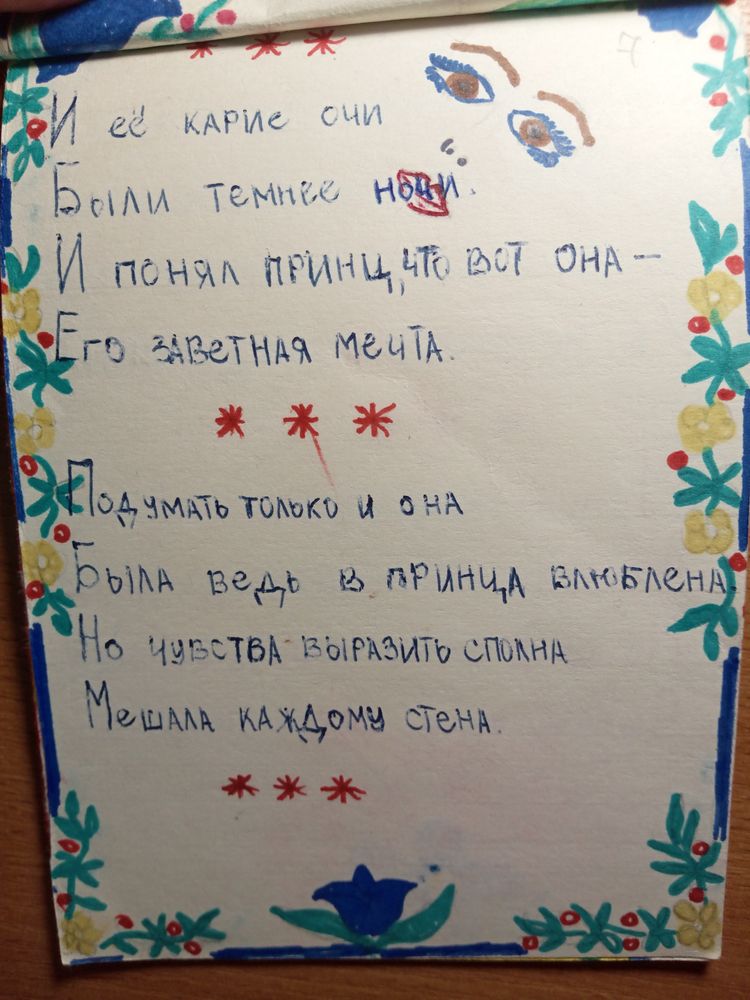 * * *
7
И её карие очи
Были темнее ночи.
И понял принц, что вот она —
Его заветная мечта.
* * *
Подумать только и она
Была ведь в принца влюблена.
Но чувства выразить сполна
Мешала каждому стена.
* * *